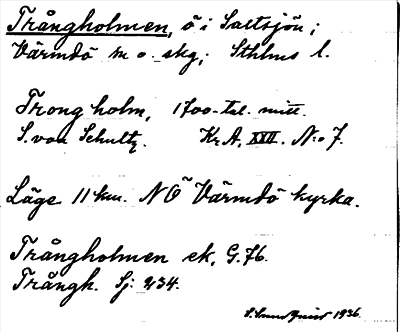 Trångholmen, ö i Saltsjön;
Värmdö m o. skg; Sthlms l.
Trongholm, 1700-tal. mitt.
S. von Schultz. Kr.A. XIII. N:o 7.
Läge 11 km. NÖ Värmdö kyrka.
Trångholmen ek. G. 76.
Trångh. Sj: 234.
1936.